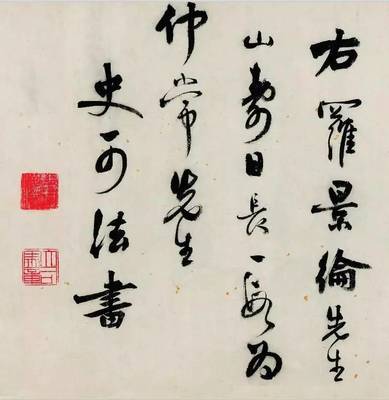 右羅景綸先生
山靜日長一段为
仲常先生
史可法書